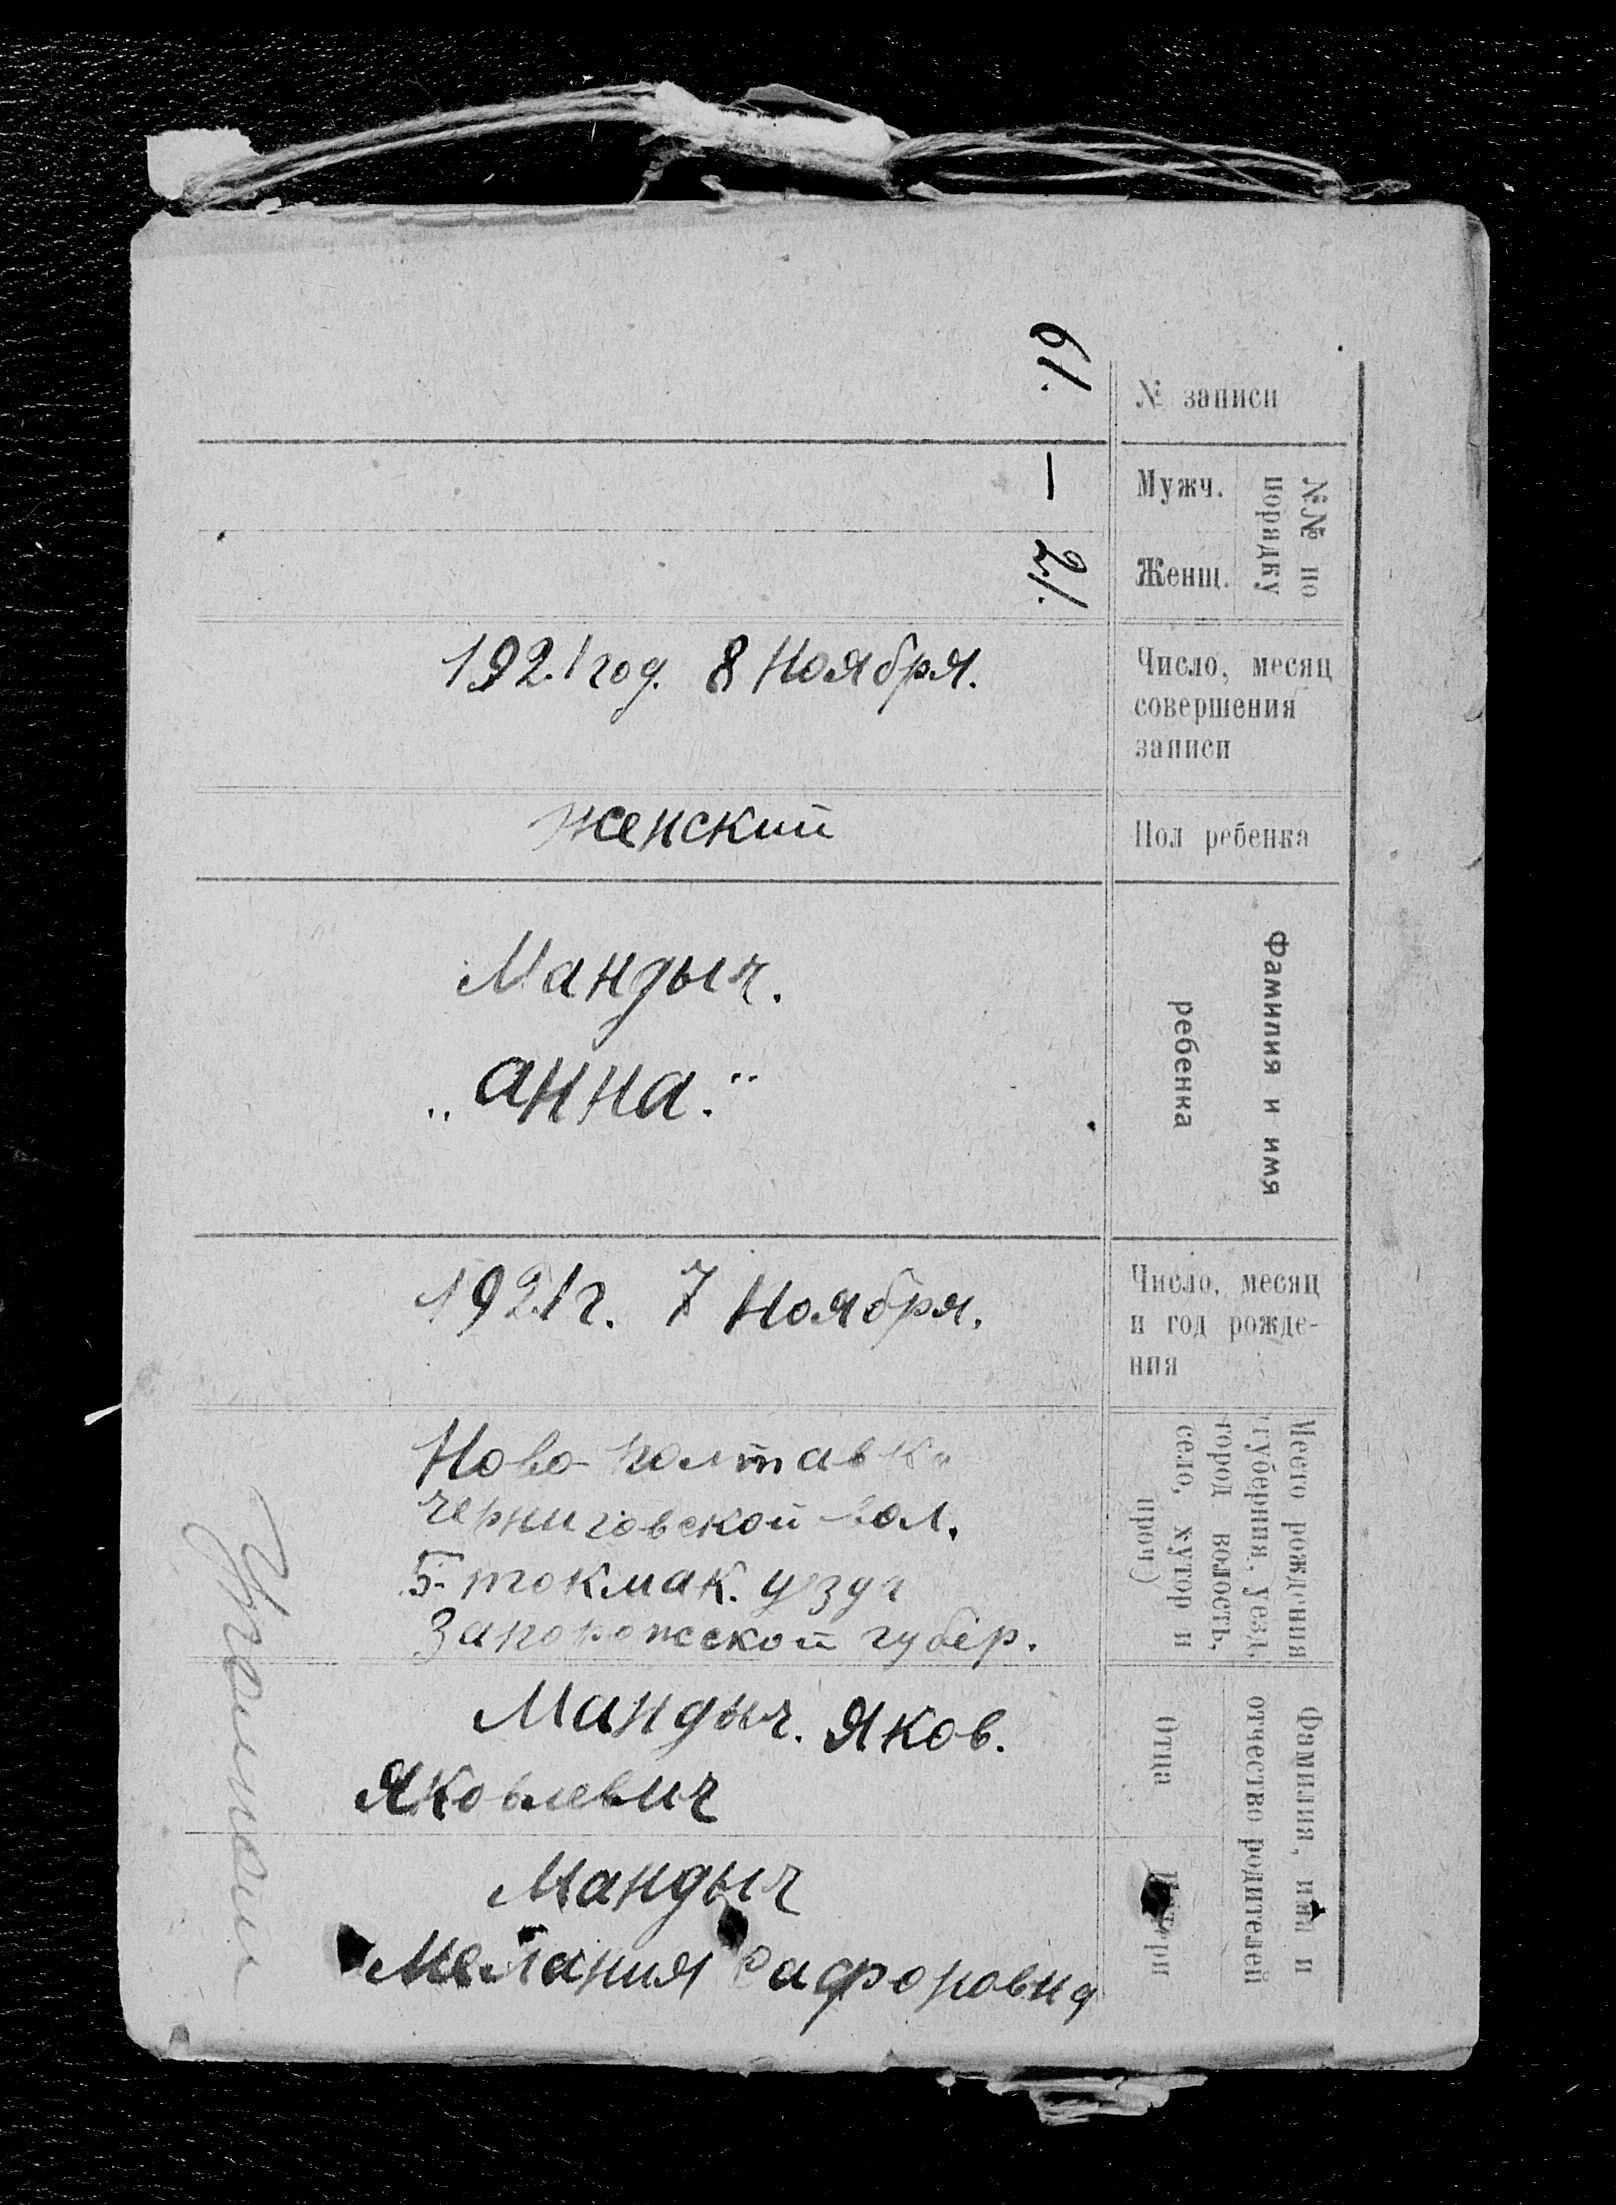 № записи
61.
№№ по
порядку
Мужч.
—
Женщ.
21.
Число, месяц
совершения
записи
1921 год. 8 Ноября.
Пол ребенка
женский
Фамилия и имя
ребенка
Мандыч.
„Анна."
Число, месяц
и год рожде-
ния
1921 г. 7 Ноября.
Место рождения
(губерния, уезд,
город волость,
село, хутор и
проч)
Ново-Полтавка
Черниговской вол.
Б-токмак. уезда
Запорожской губер.
Фамилия, имя и
отчество родителей
Отца
Мандыч. Яков.
Яковлевич
Матери
Мандыч
Мелания